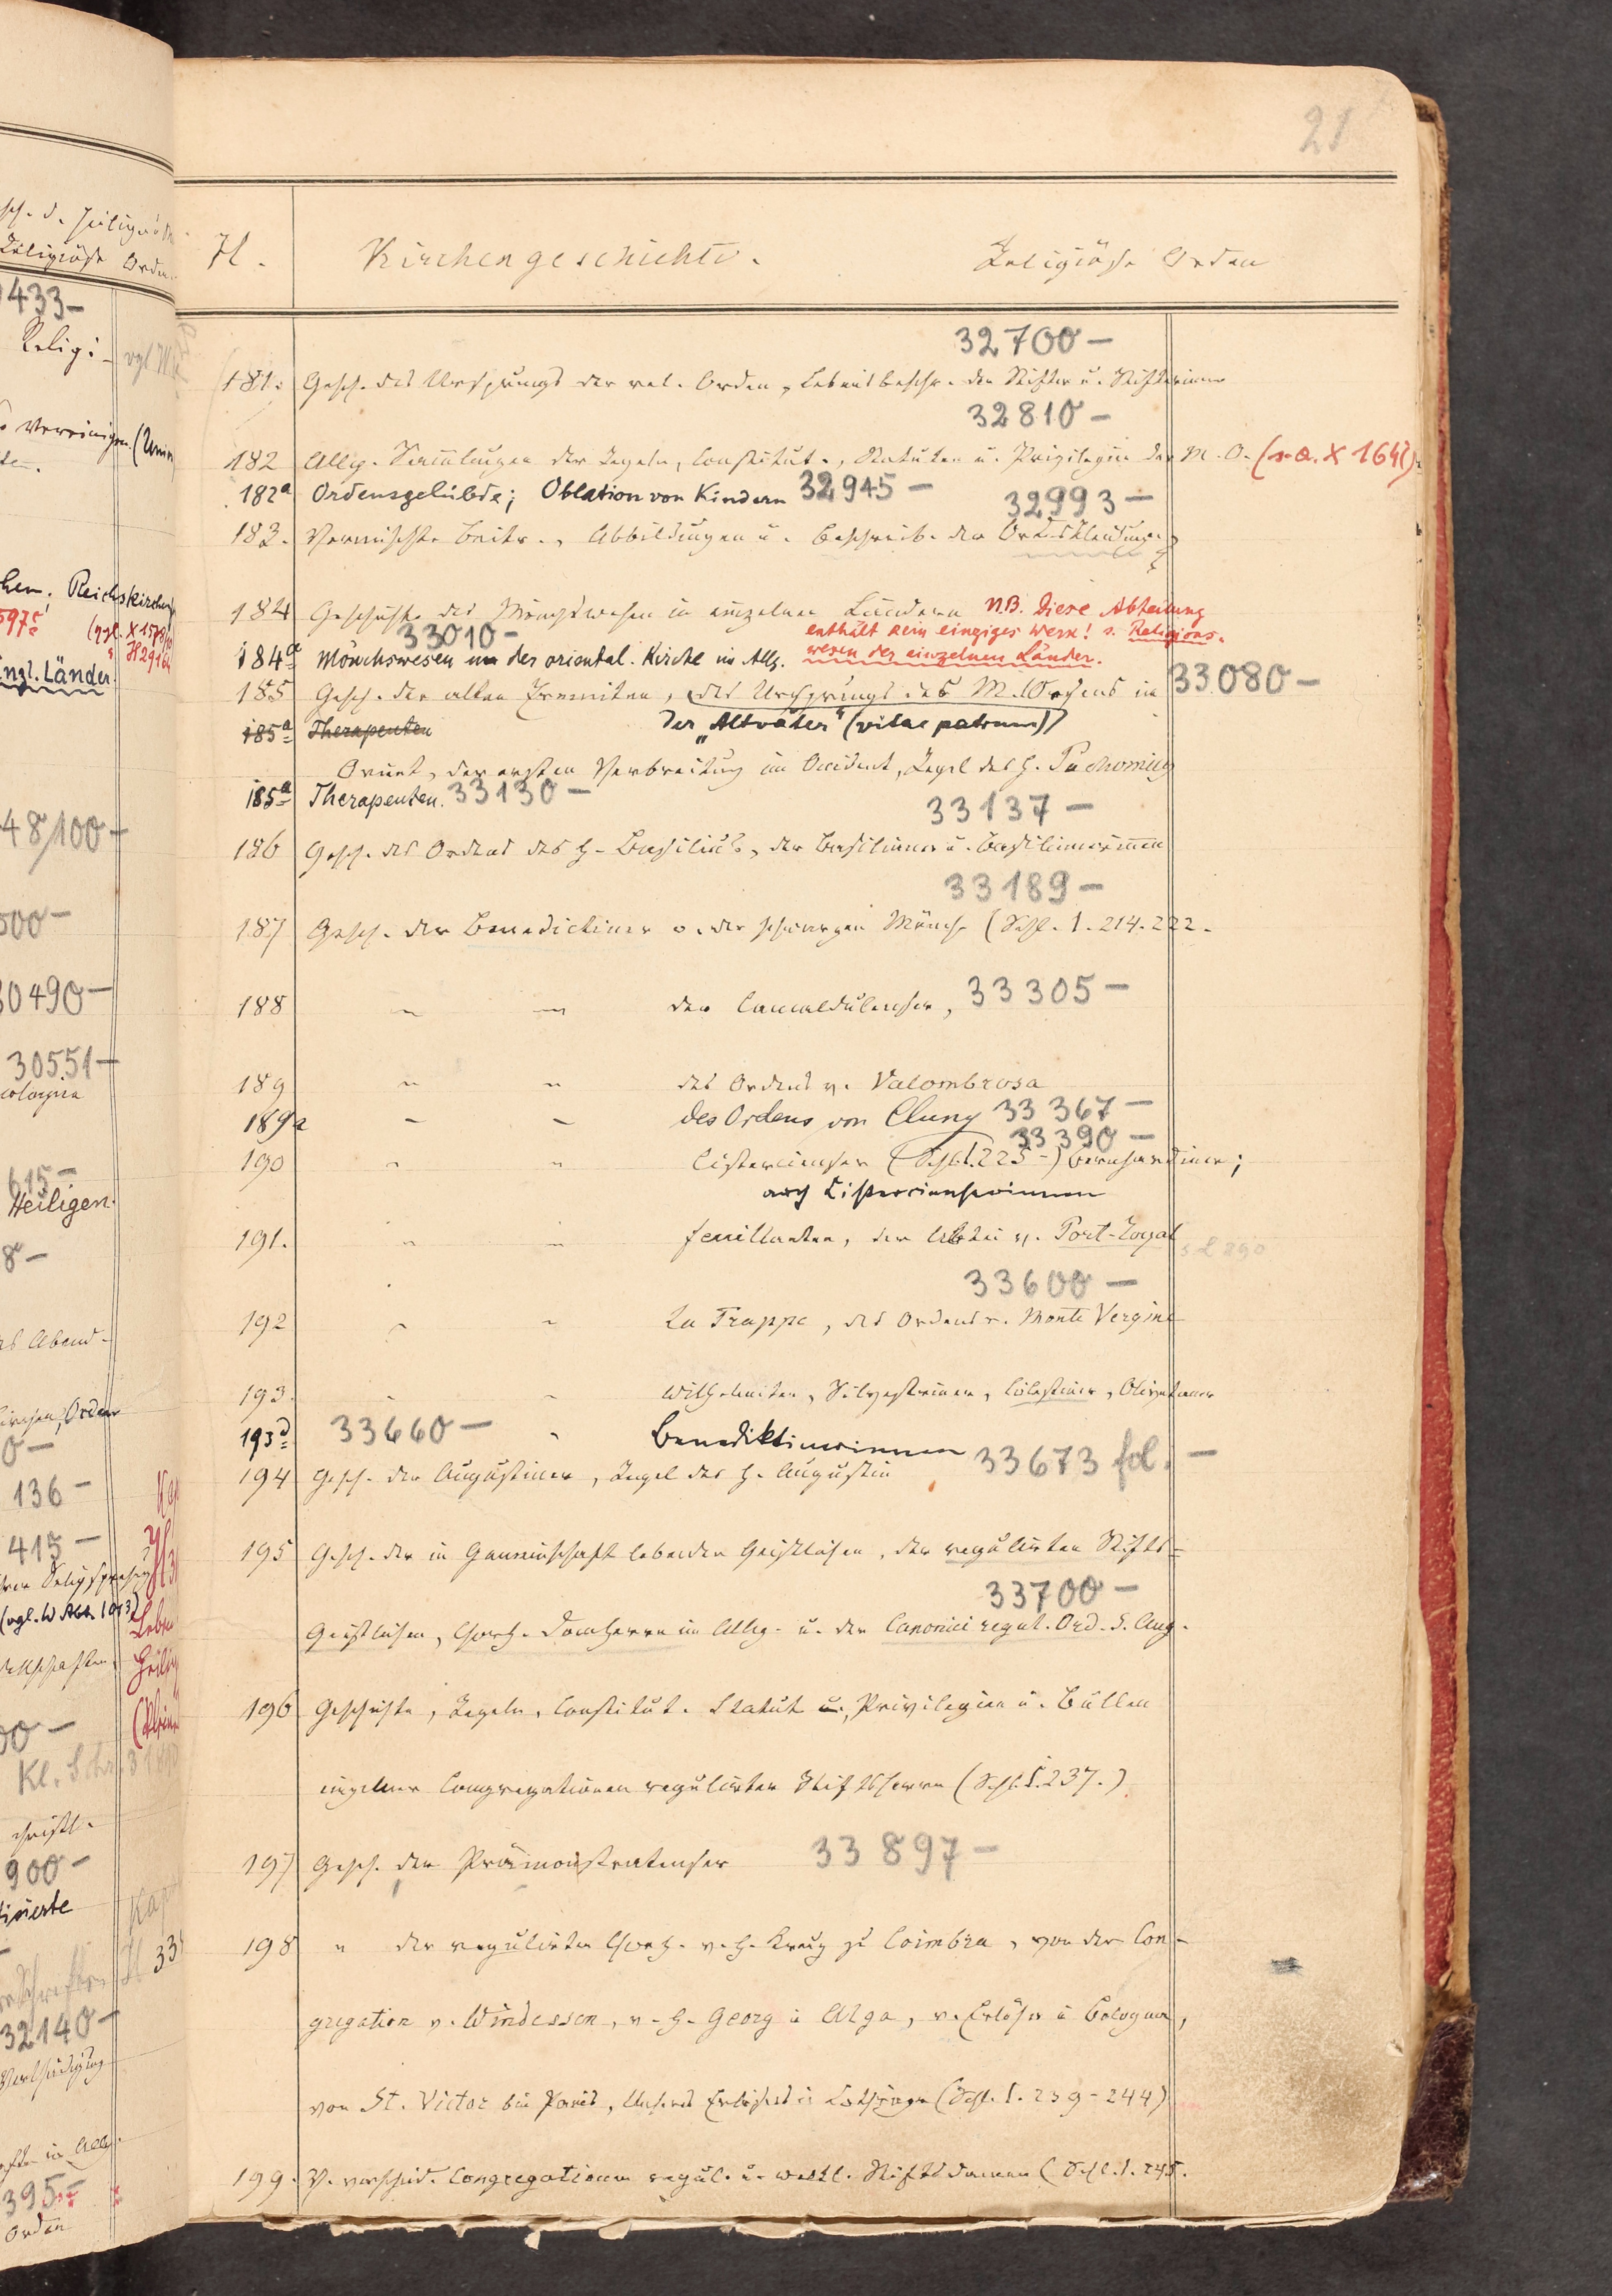 21
H. Kirchengeschichte. Religiöse Orden
32700 —
181. Gesch. des Ursprungs der rel. Orden, Lebensbeschr. der Stifter u. Stifterinnen
32810 —
182 Allg. Sammlungen der Regeln, Constitut., Statuten u. Privilegien der M. O. (s. a. X 164
182a Ordensgelübde; Oblation von Kindern 32945 —
32993 —
183. Vermischte Beitr., Abbildungen u. Beschreib. der Ordenskleidungen
184 Geschichte des Mönchswesen in einzelnen Ländern N.B. Diese Abteilung
enthält kein einziges Werk! s. Religions-
wesen der einzelnen Länder.
33010 —
184a Mönchswesen in der oriental. Kirche im Allg.
33080 —
185 Gesch. der alten Eremiten, des Ursprungs des M. Ordens im
185a Therapeuten
der „Altväter" (vitae patrum)
Orient, der ersten Verbreitung im Occident, Regel des h. Pachomius
185a Therapeuten. 33130 —
33137 —
186 Gesch. des Ordens des h. Basilius, der Basilianer u. Basilianerinnen
33189 —
187 Gesch. der Benedictiner o. der schwarzen Mönche (Schl. 1. 214. 222.
188 " " der Camaldulenser, 33305 —
189 " " des Ordens v. Valombrosa
189a " " des Ordens von Cluny 33367 —
33390 —
190 " " Cistercienser (Schl. 1. 225 –) Bernhardiner;
auch Cistercienserinnen
191. " " Feuillanten, der Abtei v. Port-Royal
33600 —
192 " " La Trappe, des Ordens v. Monte Vergine
193. " " Wilhelmiten, Silvestriner, Cölestiner, Olivetaner
193d 33660 — " Benediktinerinnen
33673 fol. —
194 Gesch. der Augustiner, Regel des h. Augustin
195 Gesch. der in Gemeinschaft lebenden Geistlichen, der regulirten Stifts-
33700 —
Geistlichen, Chorh. Domherrn im Allg. u. der Canonici regul. Ord. S. Aug.
196 Geschichte, Regeln, Constitut. Statut u. Privilegien u. Bullen
einzelner Congregationen regulirter Stiftsherrn (Schl. 1. 237.)
197 Gesch. der Prämonstratenser 33897 —
198 " der regulirten Chorh. v. h. Kreuz zu Coimbra, von der Con-
gregation v. Windessen, v. h. Georg in Alga, v. Erlöser in Bologna,
von St. Victor bei Paris, Unseres Erlösers in Lothringen (Schl. 1. 239–244)
199. V. verschied. Congregationen regul. u. weltl. Stiftsdamen (Schl. 1. 245.
433 —
Religi-
Reichskirchen
Länder
48/100 —
500 —
30490 —
30551 —
615 —
Heiligen.
8 —
136 —
415 —
(vgl. W Abt. 193)
900 —
32140 —
395 —
Orden